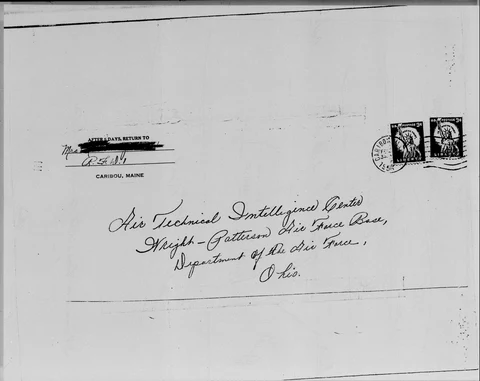 AFTER 5 DAYS, RETURN TO
Mrs
R.F.D. 1
CARIBOU, MAINE
CARIBOU
LIBERTY
LIBERTY
Air Technical Intelligence Center
Wright-Patterson Air Force Base,
Department of the Air Force,
Ohio.